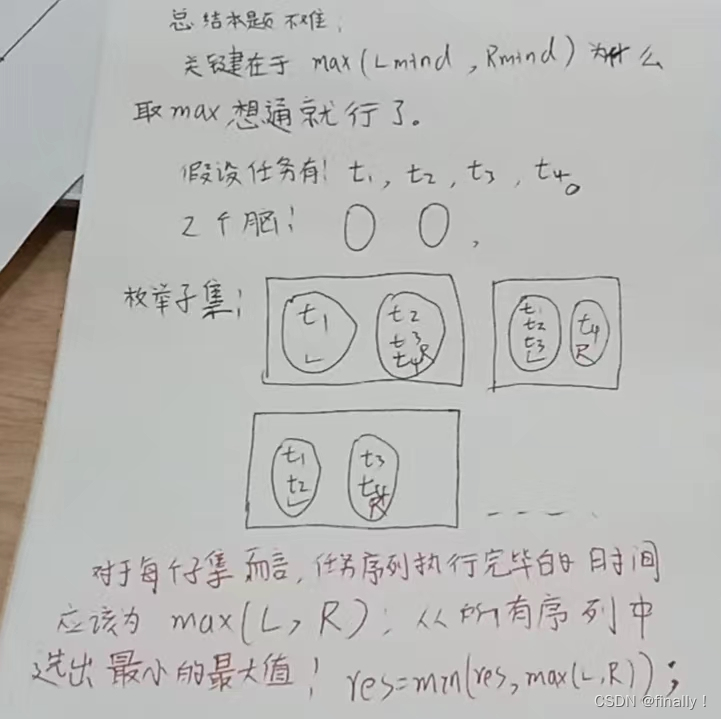 总结本题不难;
关键在于 max(Lmind,Rmind)为什么
取max想通就行了。
假设任务有! t1, t2, t3, t4。
2个脑! 0 0 ,
枚举子集;
t1 L
t2 t3 t4 R
t1 t2 t3 L
t4 R
t1 t2 L
t3 t4 R
对于每个子集而言,任务序列执行完毕的时间
应该为 max(L,R); 从所有序列中
选出最小的最大值! res=min(res,max(L,R));
CSDN @finally!